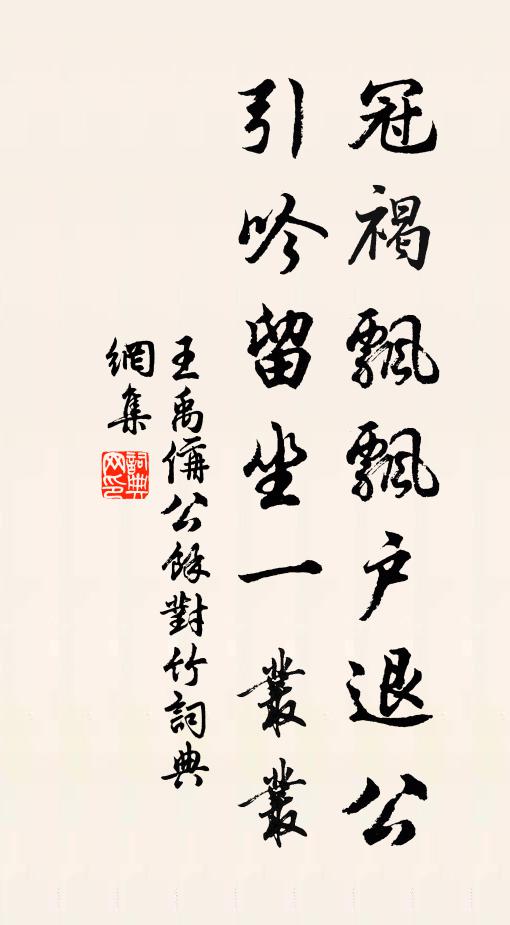 冠褐飄飄戶退公
引吟留坐一叢叢
王禹偁公餘對竹詞典
網集
詞典網印